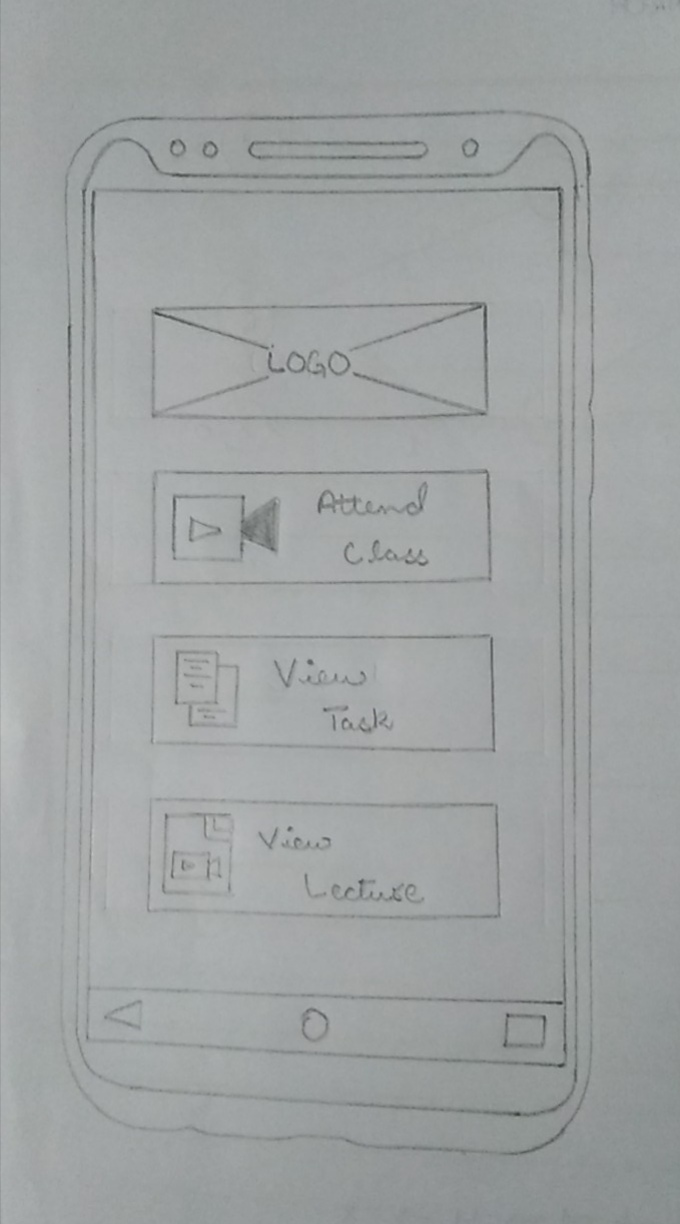 LOGO
Attend
Class
View
Task
View
Lecture